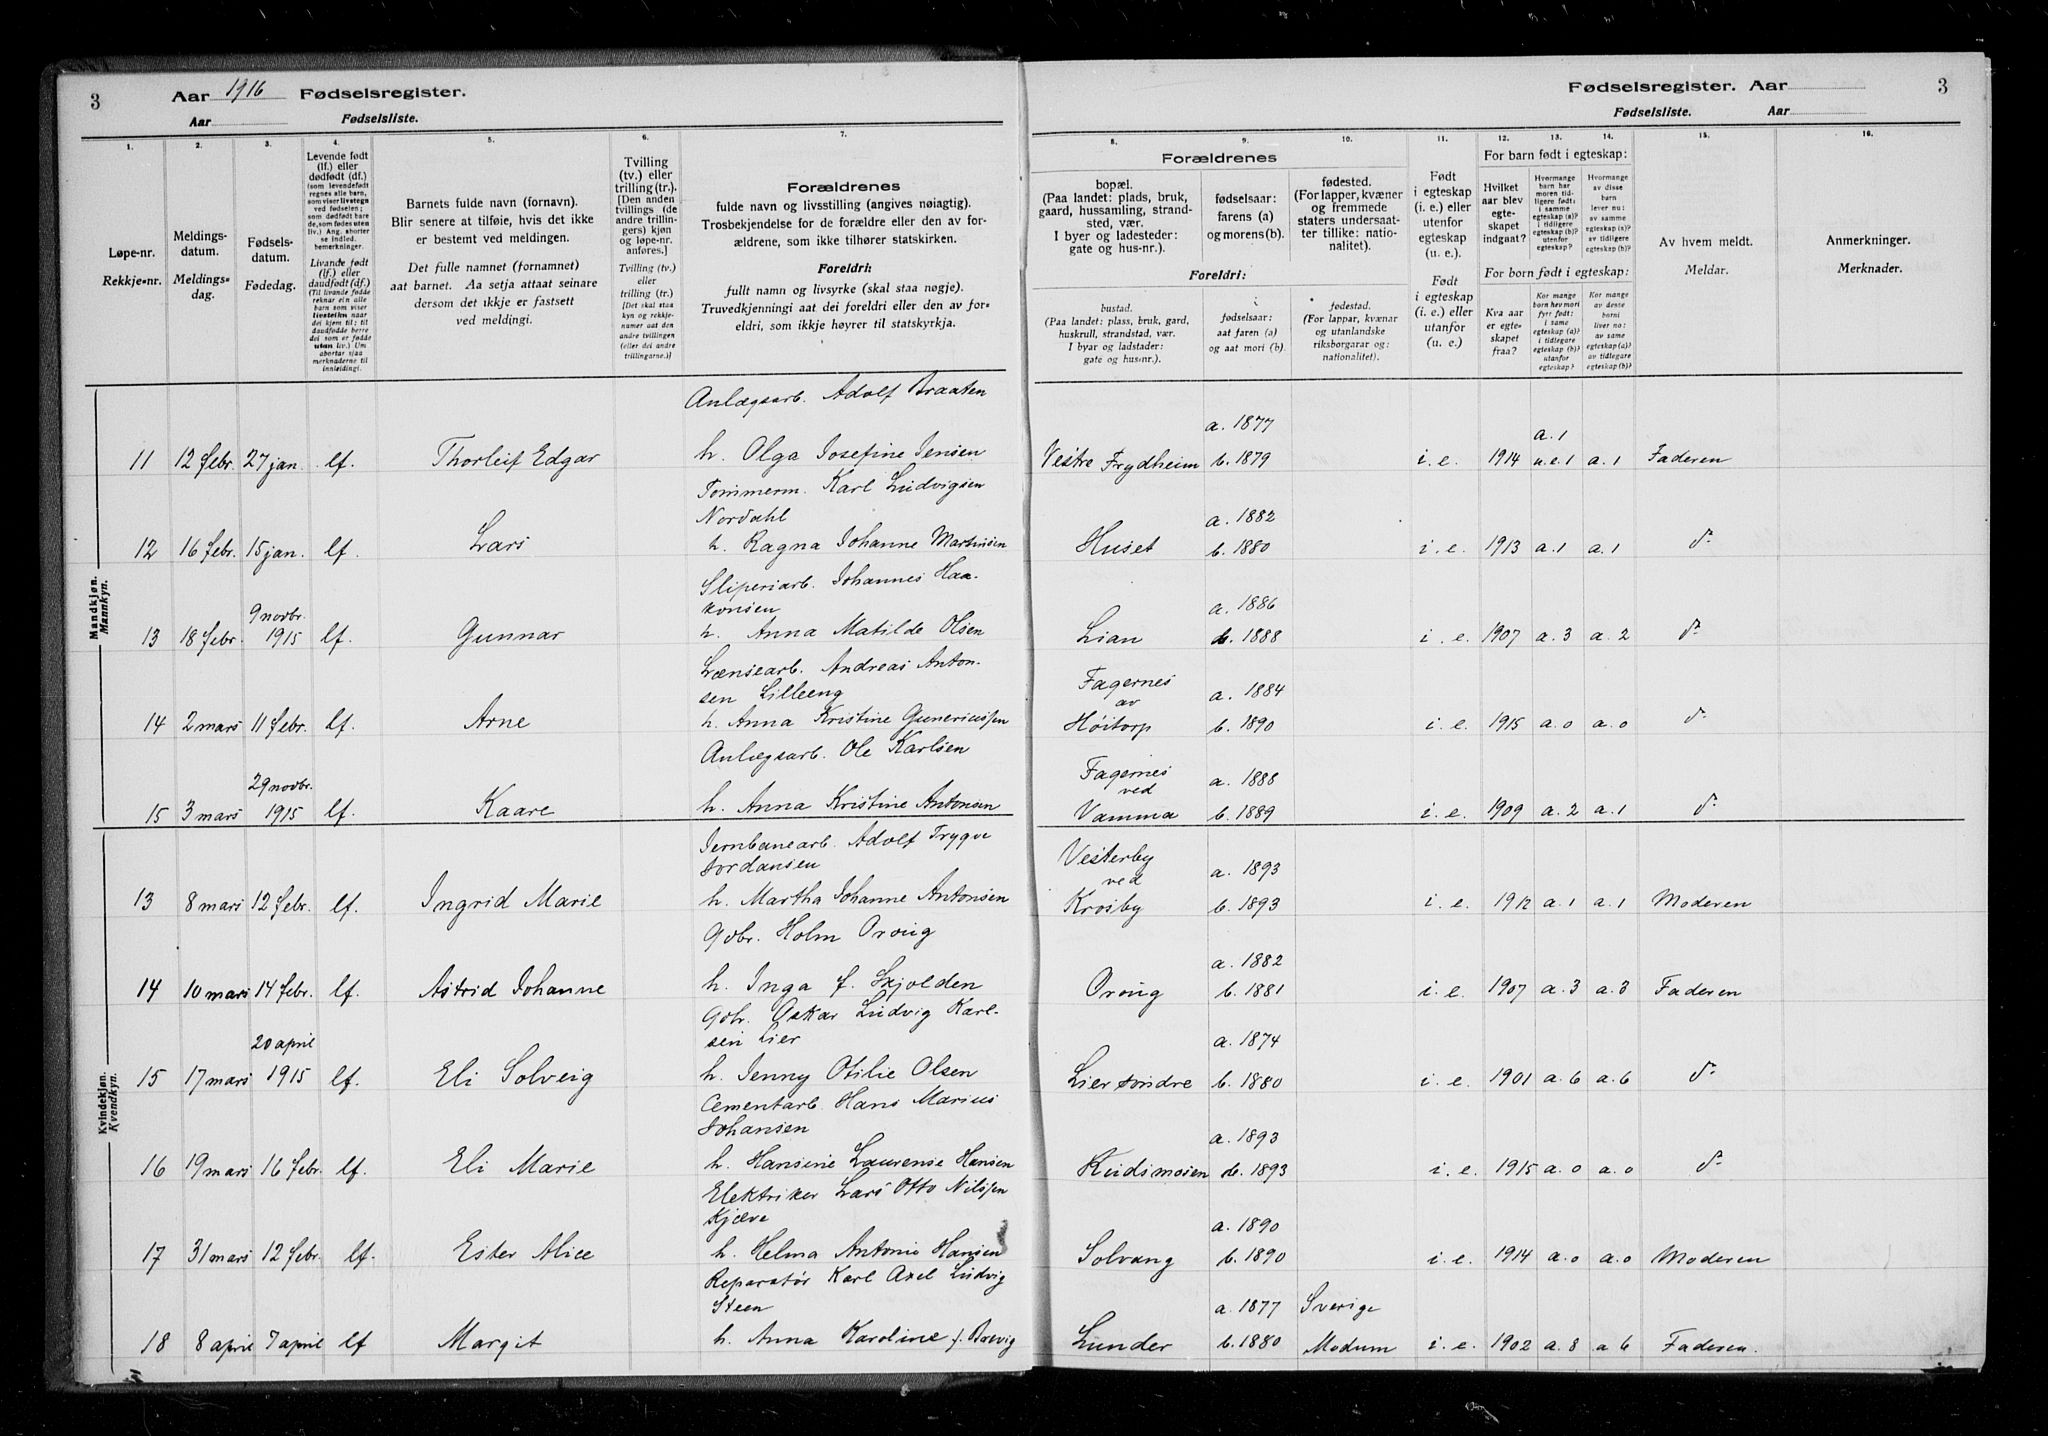 3 Aar 1916 Fødselsregister.
Aar Fødselsliste.
Fødselsregister. Aar 3
Fødselsliste. Aar
1. 2. 3. 4. 5. 6. 7. 8. 9. 10. 11. 12. 13. 14. 15. 16.
Løpe-nr.
Rekkje-nr.
Meldings-
datum.
Meldings-
dag.
Fødsels-
datum.
Fødedag.
Levende født
(lf.) eller
dødfødt (df.)
(som levendefødt
regnes alle barn,
som viser livstegn
ved fødselen;
som dødfødt bare
de, som fødes uten
liv.) Ang. aborter
se indled.
bemerkninger.
Livande født
(lf.) eller
daudfødt (df.)
(Til livande fødde
reknar ein alle
barn som viser
livsteikn naar
dei kjem til; til
daudfødde berre
dei som er fødde
utan liv.) Um
abortar sjaa
merknaderne til
innleiding).
Barnets fulde navn (fornavn).
Blir senere at tilføie, hvis det ikke
er bestemt ved meldingen.
Det fulle namnet (fornamnet)
aat barnet. Aa setja attaat seinare
dersom det ikkje er fastsett
ved meldingi.
Tvilling
(tv.) eller
trilling (tr.).
[Den anden
tvillings (de
andre trillin-
gers) kjøn
og løpe-nr.
anføres.]
Tvilling (tv.)
eller
trilling (tr.)
[Det skal staa
kyn og rekkje-
numer aat den
andre tvillingen
(eller dei andre
trillingarne.)]
Forældrenes
fulde navn og livsstilling (angives nøiagtig).
Trosbekjendelse for de forældre eller den av for-
ældrene, som ikke tilhører statskirken.
Foreldri:
fullt namn og livsyrke (skal staa nøgje).
Truvedkjenningi aat dei foreldri eller den av for-
eldri, som ikkje høyrer til statskyrkja.
Forældrenes
bopæl.
(Paa landet: plads, bruk,
gaard, hussamling, strand-
sted, vær.
I byer og ladesteder:
gate og hus-nr.).
fødselsaar:
farens (a)
og morens (b).
fødested.
(For lapper, kvæner
og fremmede
staters undersaat-
ter tillike: natio-
nalitet).
Foreldri:
bustad.
(Paa landet: plass, bruk, gard,
huskrull, strandstad, vær.
I byar og ladstader:
gate og hus-nr.).
fødselsaar:
aat faren (a)
og aat mori (b).
fødestad.
(For lappar, kvænar
og utanlandske
riksborgarar og:
nationalitet).
Født
i egteskap
(i. e.) eller
utenfor
egteskap
(u. e.).
Født
i egteskap
(i. e.) eller
utanfor
egteskap
(u. e.).
For barn født i egteskap:
Hvilket
aar blev
egte-
skapet
indgaat?
Hvormange
barn har
moren tid-
ligere født:
i samme
egteskap (a)?
i tidligere
egteskap (b)?
utenfor
egteskap?
Hvormange
av disse
barn
lever nu:
av samme
egteskap (a)?
av tidligere
egteskap (b)?
For born født i egteskap:
Kva aar
er egte-
skapet
fraa?
Kor mange
born hev mori
fyrr født:
i same
egteskap (a)?
i tidlegare
egteskap (b)?
utanfor
egteskap?
Kor mange
av desse
borni
liver no:
av same
egteskap (a)?
av tidlegare
egteskap (b)?
Av hvem meldt.
Meldar.
Anmerkninger.
Merknader.
Mandkjøn.
Mannkyn.
Anlægsarb. Adolf Braaten
a. 1877 a. 1
11 12 febr. 27 jan. lf. Thorleif Edgar h. Olga Josefine Jensen Vestre Frydheim b. 1879 i. e. 1914 u. e. 1 a. 1 Faderen
Tømmerm. Karl Ludvigsen
Nordahl a. 1882
12 16 febr. 15 jan. lf. Lars h. Ragna Johanne Martinsen Huset b. 1880 i. e. 1913 a. 1 a. 1 d°
Sliperiarb. Johannes Haa-
9 novbr. konsen a. 1886
13 18 febr. 1915 lf. Gunnar h. Anna Matilde Olsen Lian b. 1888 i. e. 1907 a. 3 a. 2 d°
Lænsearb. Andreas Anton-
sen Lilleeng Fagernes av a. 1884
14 2 mars 11 febr. lf. Arne h. Anna Kristine Guneriussen Høitorp b. 1890 i. e. 1915 a. 0 a. 0 d°
Anlægsarb. Ole Karlsen
29 novbr. Fagernes ved a. 1888
15 3 mars 1915 lf. Kaare h. Anna Kristine Antonsen Vamma b. 1889 i. e. 1909 a. 2 a. 1 d°
Kvindekjøn.
Kvendkyn.
Jernbanearb. Adolf Trygve
Jordansen Vesterby ved a. 1893
13 8 mars 12 febr. lf. Ingrid Marie h. Martha Johanne Antonsen Krosby b. 1893 i. e. 1912 a. 1 a. 1 Moderen
Gdbr. Holm Oroug
a. 1882
14 10 mars 14 febr. lf. Astrid Johanne h. Inga f. Skjolden Oroug b. 1881 i. e. 1907 a. 3 a. 3 Faderen
Gdbr. Oskar Ludvig Karl-
20 april sen Lier a. 1874
15 17 mars 1915 lf. Eli Solveig h. Jenny Otilie Olsen Lier søndre b. 1880 i. e. 1901 a. 6 a. 6 d°
Cementarb. Hans Marius
Johansen a. 1893
16 19 mars 16 febr. lf. Eli Marie h. Hansine Laurense Hansen b. 1893 i. e. 1915 a. 0 a. 0 d°
Elektriker Lars Otto Nilssen
Kjæve a. 1890
17 31 mars 12 febr. lf. Ester Alice h. Helma Antonie Hansen Solvang b. 1890 i. e. 1914 a. 0 a. 0 Moderen
Reparatør Karl Axel Ludvig
Steen a. 1877 Sverige
18 8 april 7 april lf Margit h. Anna Karoline f. Lunder b. 1880 Modum i. e. 1902 a. 8 a 6 Faderen.